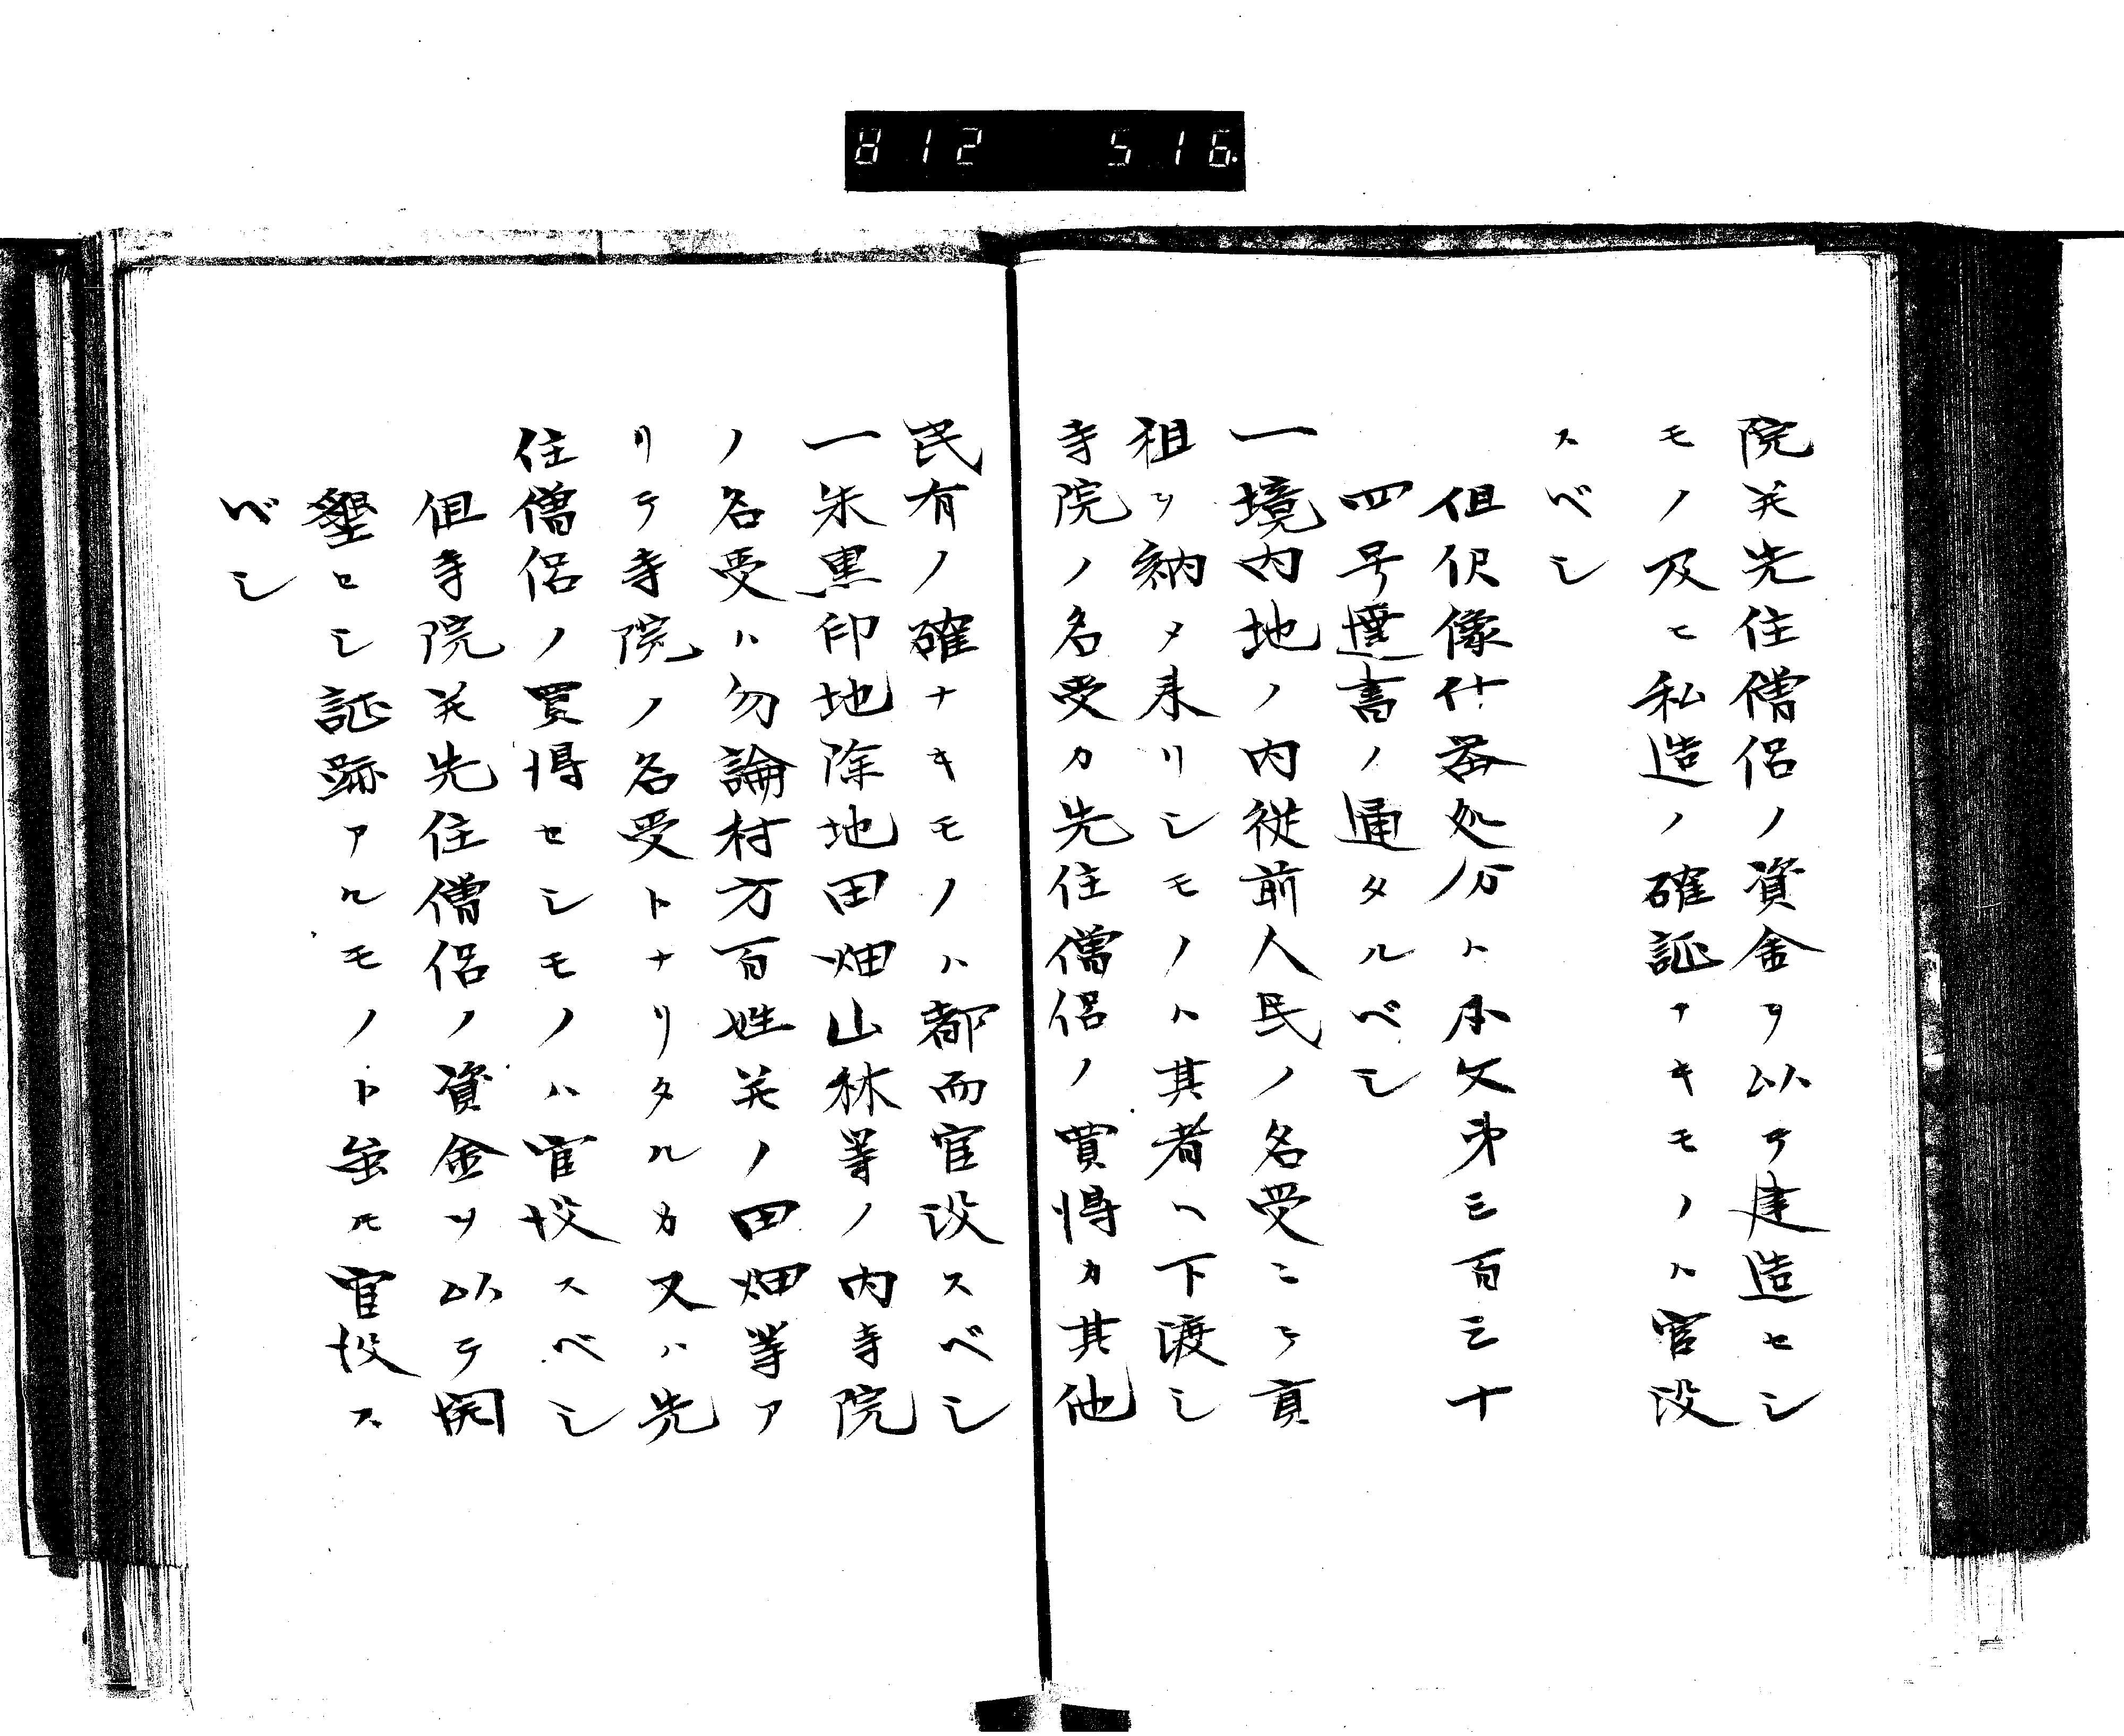 812 516.
院并先住僧侶ノ資金ヲ以テ建造セシ
モノ及ヒ私造ノ確証ナキモノハ官没
スベシ
但仏像什器処分ハ本文第三百三十
四号達書ノ通タルベシ
一境内地ノ内従前人民ノ名受ニテ貢
租ヲ納メ来リシモノハ其者ヘ下渡シ
寺院ノ名受カ先住僧侶ノ買得カ其他
民有ノ確ナキモノハ都而官没スベシ
一朱黒印地除地田畑山林等ノ内寺院
ノ名受ハ勿論村方百姓并ノ田畑等ア
リテ寺院ノ名受トナリタルカ又ハ先
住僧侶ノ買得セシモノハ官没スベシ
但寺院并先住僧侶ノ資金ヲ以テ開
墾セシ証跡アルモノト雖モ官没ス
ベシ